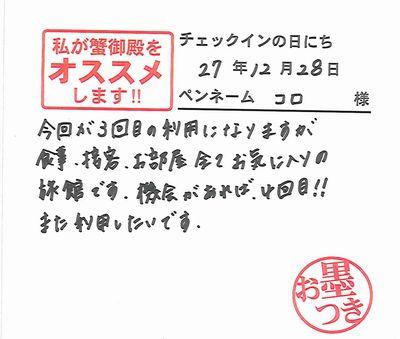 私が蟹御殿を
オススメ
します!!
チェックインの日にち
27年12月28日
ペンネーム コロ 様
今回が3回目の利用になりますが
食事、接客、お部屋全てお気に入りの
旅館です。機会があれば、4回目!!
また利用したいです。
お墨つき